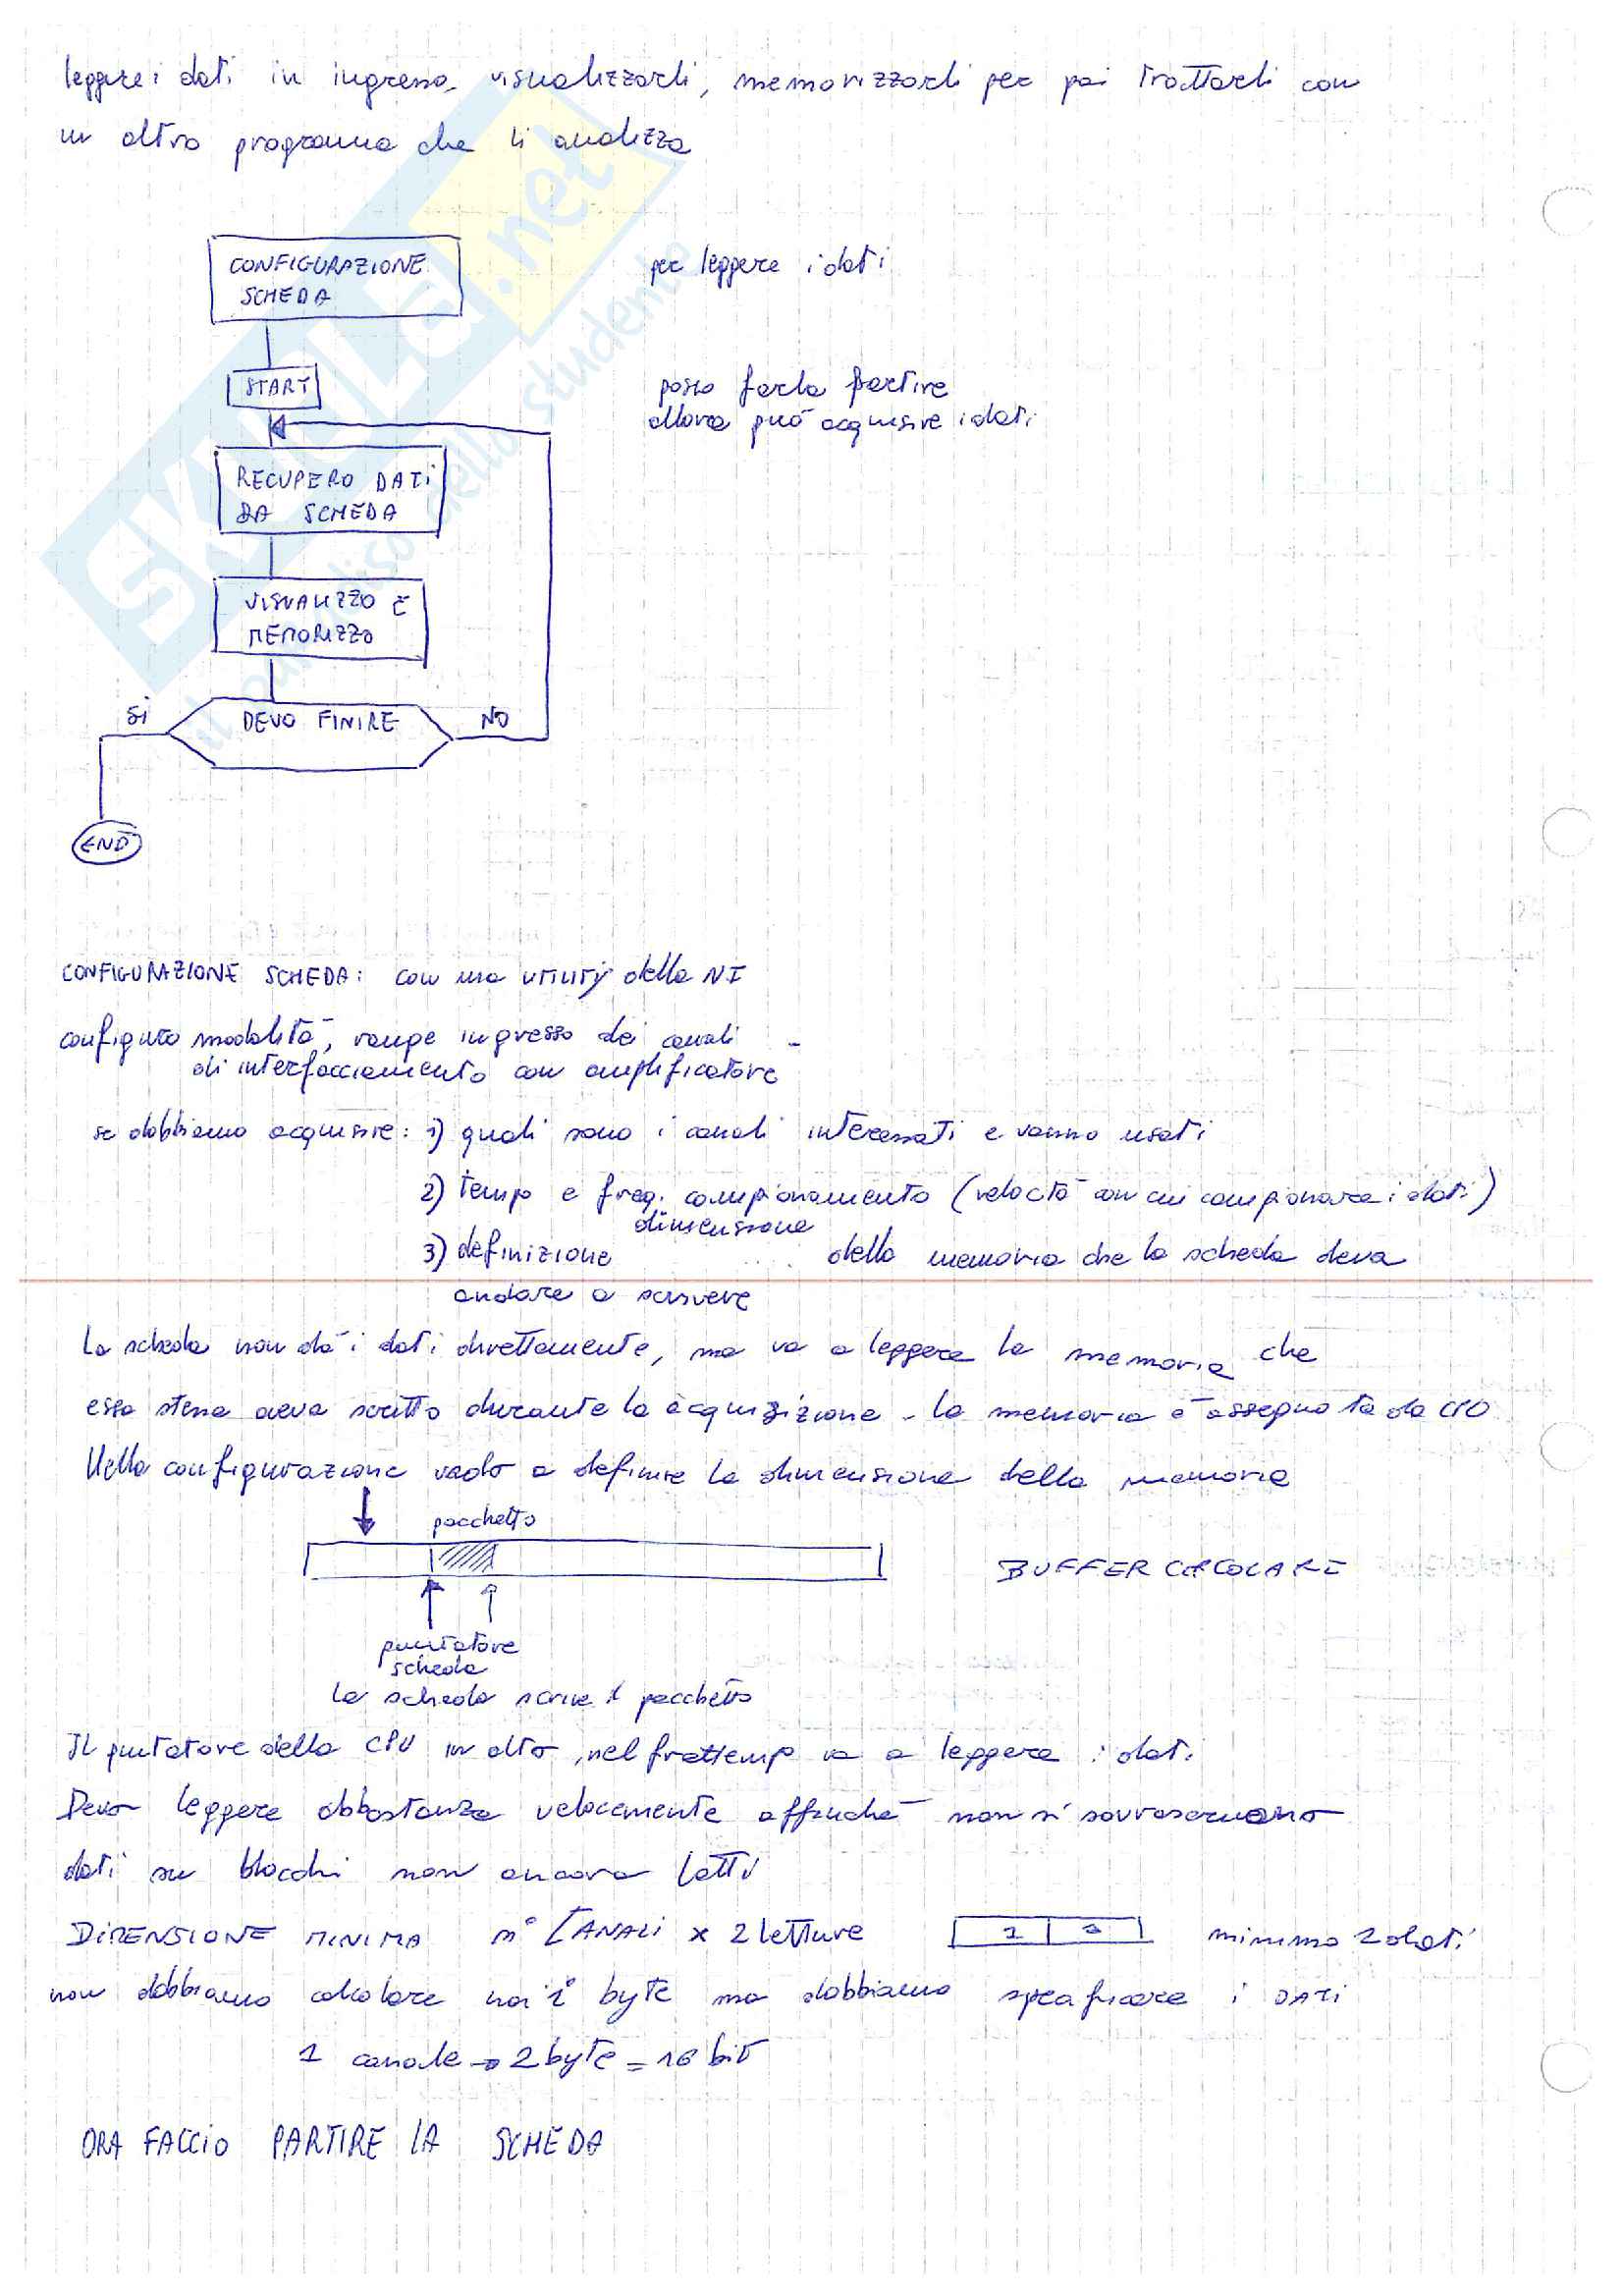 leggere i dati in ingresso, visualizzarli, memorizzarli per poi trattarli con
un altro programma che li analizza
SKUOLA.net
il paradiso dello studente
CONFIGURAZIONE
SCHEDA
per leggere i dati
START
posso farla partire
allora può acquisire i dati
RECUPERO DATI
DA SCHEDA
VISUALIZZO E
MEMORIZZO
SI
DEVO FINIRE
NO
END
CONFIGURAZIONE SCHEDA: con una utility della NI
configuro modalità, range ingresso dei canali
di interfacciamento con amplificatore
se dobbiamo acquisire: 1) quali sono i canali interessati e vanno usati
2) tempo e freq. campionamento (velocità con cui campionare i dati)
dimensione
3) definizione della memoria che la scheda deva
andare a scrivere
La scheda non dà i dati direttamente, ma va a leggere la memoria che
essa stessa aveva scritto durante la acquisizione. la memoria è assegnata da CPU
Nella configurazione vado a definire la dimensione della memoria
pacchetto
BUFFER CIRCOLARE
puntatore
scheda
la scheda scrive il pacchetto
Il puntatore della CPU in alto, nel frattempo va a leggere i dati
Devo leggere abbastanza velocemente affinché non si sovrascrivano
dati su blocchi non ancora letti
DIMENSIONE MINIMA n° CANALI x 2 letture 1 2 minimo 2 dati
non dobbiamo calcolare noi i byte ma dobbiamo specificare i DATI
1 canale → 2 byte = 16 bit
ORA FACCIO PARTIRE LA SCHEDA